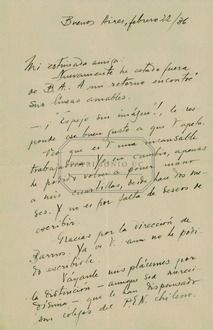 Buenos Aires, febrero 22/36
Mi estimada amiga:
Nuevamente he estado fuera
de B.A. A mi retorno encontré
sus líneas amables.
—¡"Espejo sin imagen", le res-
ponde su buen gusto a que
Veo que es una incansable
trabajadora. Yo en cambio, apenas
he podido volver a poner mano
a mis cuartillas, desde hace dos me-
ses. Y no es por falta de deseos de
escribir.
Gracias por la dirección de
Barrios. Ya a aun no le podi-
do escribirle.
Váyanle mis plácemes por
la distinción — aunque sea mereci-
dísima — que le han dispensado
sus colegas del PEN chileno.
PATRIMONIO UC